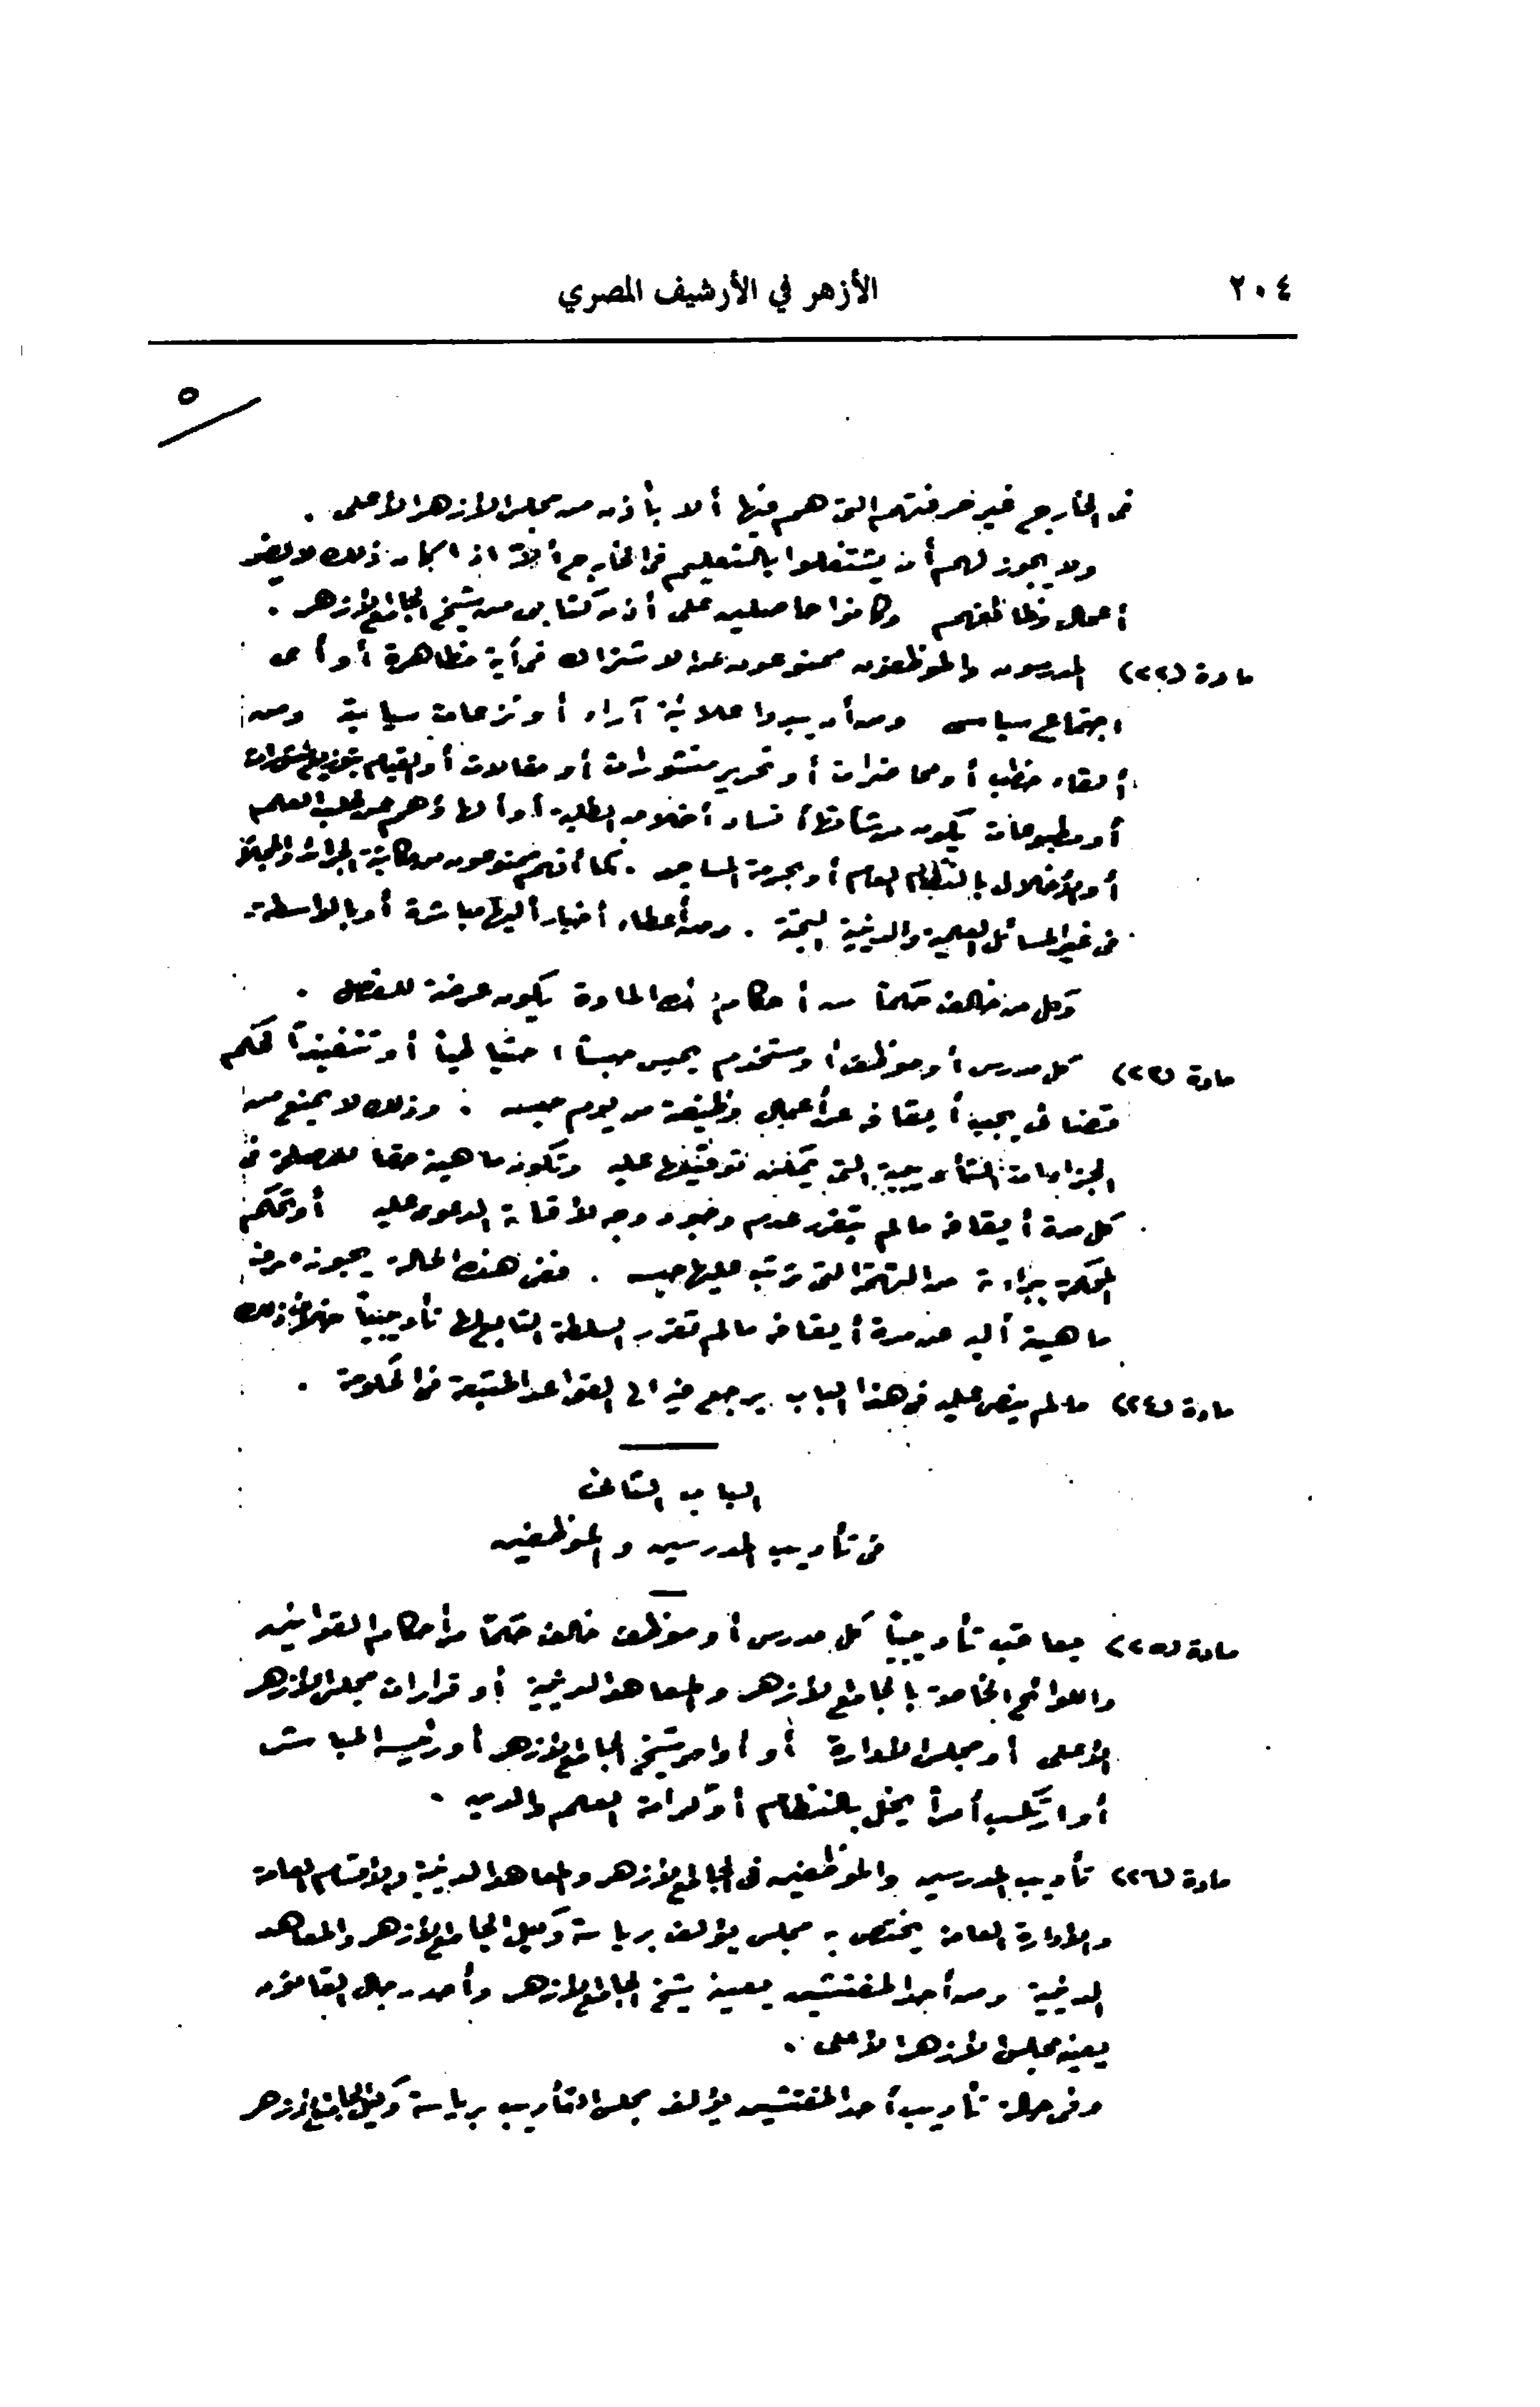 ٢٠٤
الأزهر في الأرشيف المصري
٥
فى الخارج غير حرفتهم التى هم فيها ألا بأذن من مجلس الأزهر الأعلى .
ولا يجوز لهم أن يشتغلوا بالتعليم فى الخارج ألا اذا كان ذلك لا يضر
أعمال وظائفهم وكانوا حاصلين على أذن كتابى من شيخ الجامع الأزهر .
مادة (٢٢) المدرسون والموظفون ممنوعون عن الاشتراك فى أية مظاهرة أو أى
اجتماع سياسى ومن أن يبدوا علانية آراء أو نزعات سياسية ومن
ألقاء خطب أو محاضرات أو تحرير منشورات أو مقالات أو القيام بتوزيع منشورات
أو مطبوعات يكون من شأنها فساد أخلاق الطلبة أو ألهاؤهم عن طلب العلم
أو الأخلال بالنظام العام أو بحرمة المساجد . كما أنهم ممنوعون من مكاتبة الجرائد والمجلات
فى غير المسائل العلمية والدينية البحتة . ومن أعطاء أخبار أليها مباشرة أو بالواسطة
وكل من خالف حكماً من أحكام هذه المادة يكون عرضة للفصل .
مادة (٢٣) كل مدرس أو موظف أو مستخدم يحبس حبساً احتياطياً أو تنفيذاً لحكم
قضائى يجب أيقافه عن أعمال وظيفته من يوم حبسه . وذلك لا يمنع من
الجزاءات التأديبية التى يمكن توقيعها عليه وتكون ماهيته حقا للمصلحة فى
كل مدة أيقافه مالم يتقرر عدم وجود وجه لأقامة الدعوى عليه أو تحكم
المحكمة ببراءته من التهمة التى ترتب عليها حبسه . ففى هذه الحالة يجوز صرف
ماهيته أليه عن مدة أيقافه مالم تقرر السلطة التابع لها تأديبياً خلاف ذلك
مادة (٢٤) مالم ينص عليه فى هذا الباب يرجع فيه الى القواعد المتبعة فى الحكومة .
الباب الثامن
فى تأديب المدرسين والموظفين
مادة (٢٥) يعاقب تأديبياً كل مدرس أو موظف خالف حكماً من أحكام القوانين
واللوائح الخاصة بالجامع الأزهر والمعاهد الدينية أو قرارات مجلس الأزهر
الأعلى أو مجلس الادارة أو أوامر شيخ الجامع الأزهر أو رئيسه المباشر
أو ارتكب أمراً يخل بالنظام أو كرامة العلم والدين .
مادة (٢٦) تأديب المدرسين والموظفين فى الجامع الأزهر والمعاهد الدينية والأقسام العامة
والادارة العامة يختص به مجلس يؤلف برياسة وكيل الجامع الأزهر والمعاهد
الدينية ومن أحد المفتشين يعينه شيخ الجامع الأزهر وأحد رجال القانون
يعينه مجلس الأزهر الأعلى .
وفى حالة تأديب أحد المفتشين يؤلف مجلس التأديب برياسة وكيل الجامع الأزهر